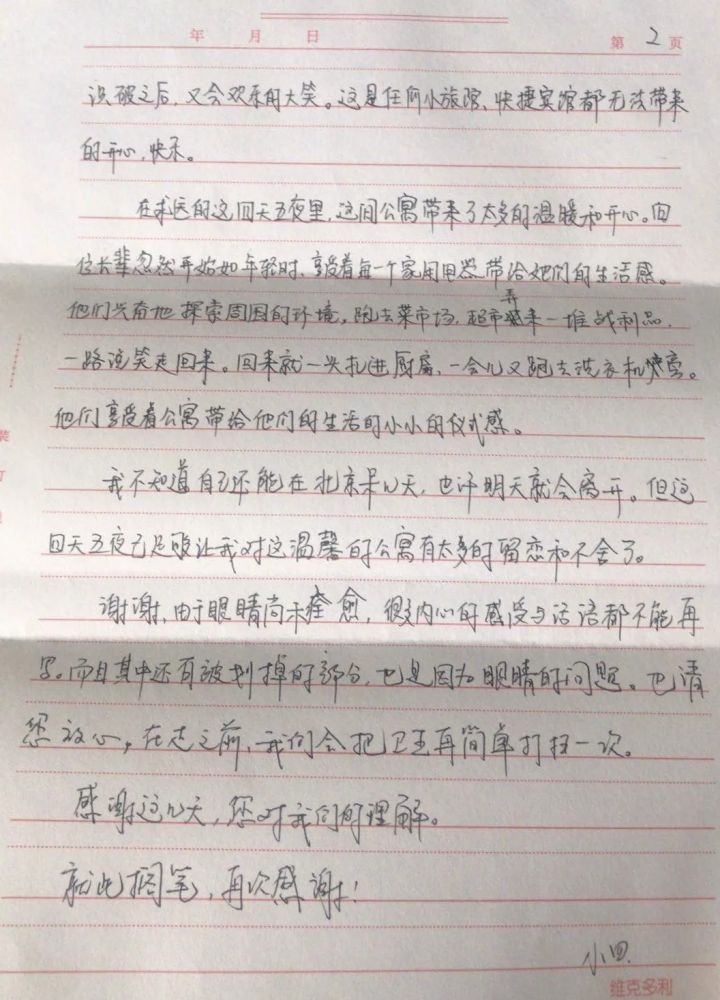 年 月 日 第 2 页
识破之后,又会欢乐的大笑。这是任何小旅馆、快捷宾馆都无法带来
的开心,快乐。
在求医的这四天五夜里,这间公寓带来了太多的温暖和开心。四
位长辈忽然开始如年轻时,享受着每一个家用电器带给她们的生活感。
他们兴奋地探索周围的环境,跑去菜市场,超市弄来一堆战利品,
一路说笑走回来。回来就一头扎进厨房,一会儿又跑去洗衣机
他们享受着公寓带给他们的生活的小小的仪式感。
我不知道自己还能在北京呆几天,也许明天就会离开。但这
四天五夜已足够让我对这温馨的公寓有太多的留恋和不舍了。
谢谢,由于眼睛尚未痊愈,很多内心的感受与话语都不能再
写。而且其中还有被划掉的部分,也是因为眼睛的问题。也请
您放心,在走之前,我们会把卫生再简单打扫一次。
感谢这几天,您对我们的理解。
就此搁笔,再次感谢!
小四
维克多利
装
订